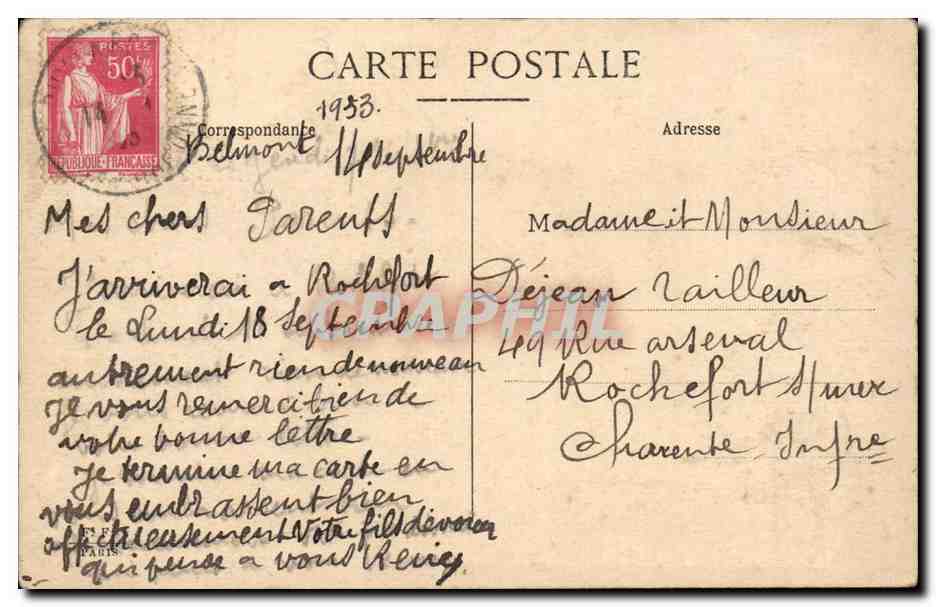 CARTE POSTALE
POSTES
50c
REPUBLIQUE FRANCAISE
Correspondance
Adresse
1933.
Belmont 14 septembre
Mes chers Parents
J'arriverai a Rochefort
le Lundi 18 Septembre
autrement rien de nouveau
Je vous remerci bien de
votre bonne lettre
Je termine ma carte en
vous embrassent bien
affectueusement Votre fils dévoué
qui pense a vous
PARIS
Madame et Monsieur
Déjean Tailleur
49 Rue arsenal
Rochefort S/mer
Charente Infre
CPAPHIL